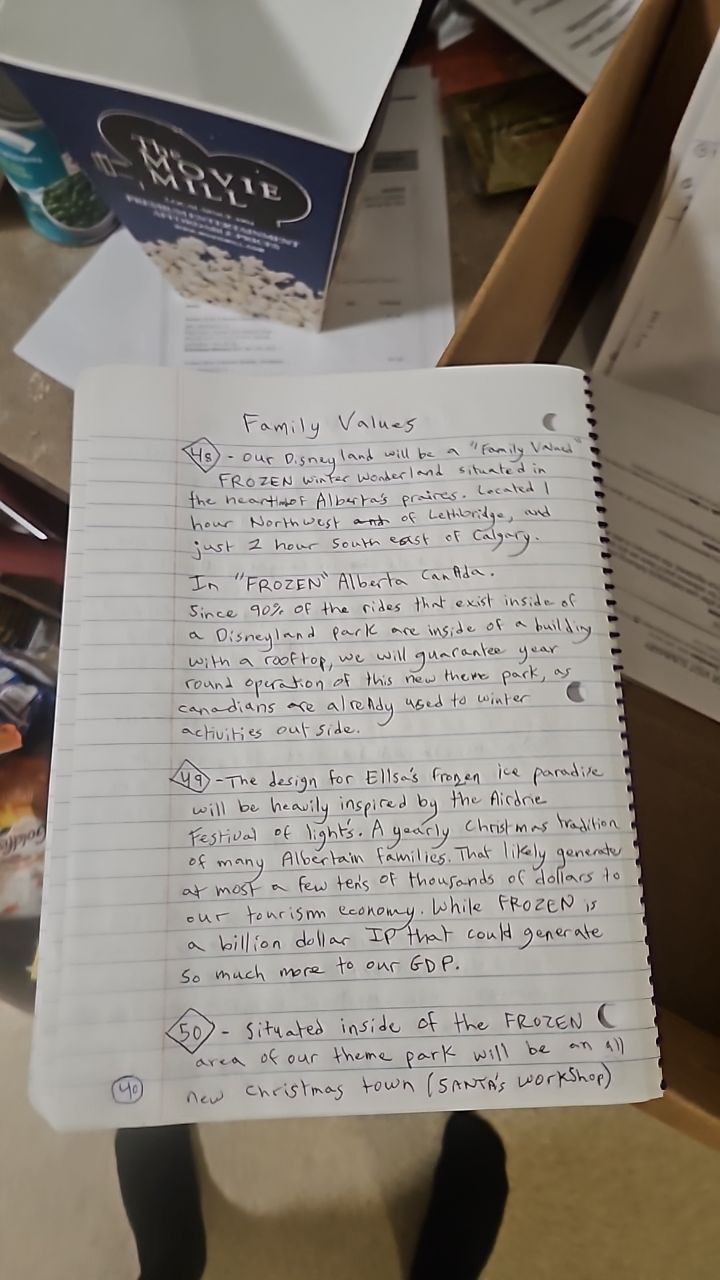 THE
MOVIE
MILL
LOCAL SINCE
PREMIUM ENTERTAINMENT
AFFORDABLE PRICES
Family Values
48 - Our Disneyland will be a "Family Valued"
FROZEN winter wonderland situated in
the heart of Alberta's praires. Located 1
hour Northwest and of Lethbridge, and
just 2 hour south east of Calgary.
In "FROZEN" Alberta CanAda.
Since 90% of the rides that exist inside of
a Disneyland park are inside of a building
with a rooftop, we will guarantee year
round operation of this new theme park, as
canadians are already used to winter
activities out side.
49 - The design for Ellsa's frozen ice paradise
will be heavily inspired by the Airdrie
Festival of light's. A yearly Christmas tradition
of many Albertain families. That likely generate
at most a few ten's of thousands of dollars to
our tourism economy. While FROZEN is
a billion dollar IP that could generate
so much more to our GDP.
50 - Situated inside of the FROZEN
area of our theme park will be an all
new christmas town (SANTA's workshop)
40
Goldfis